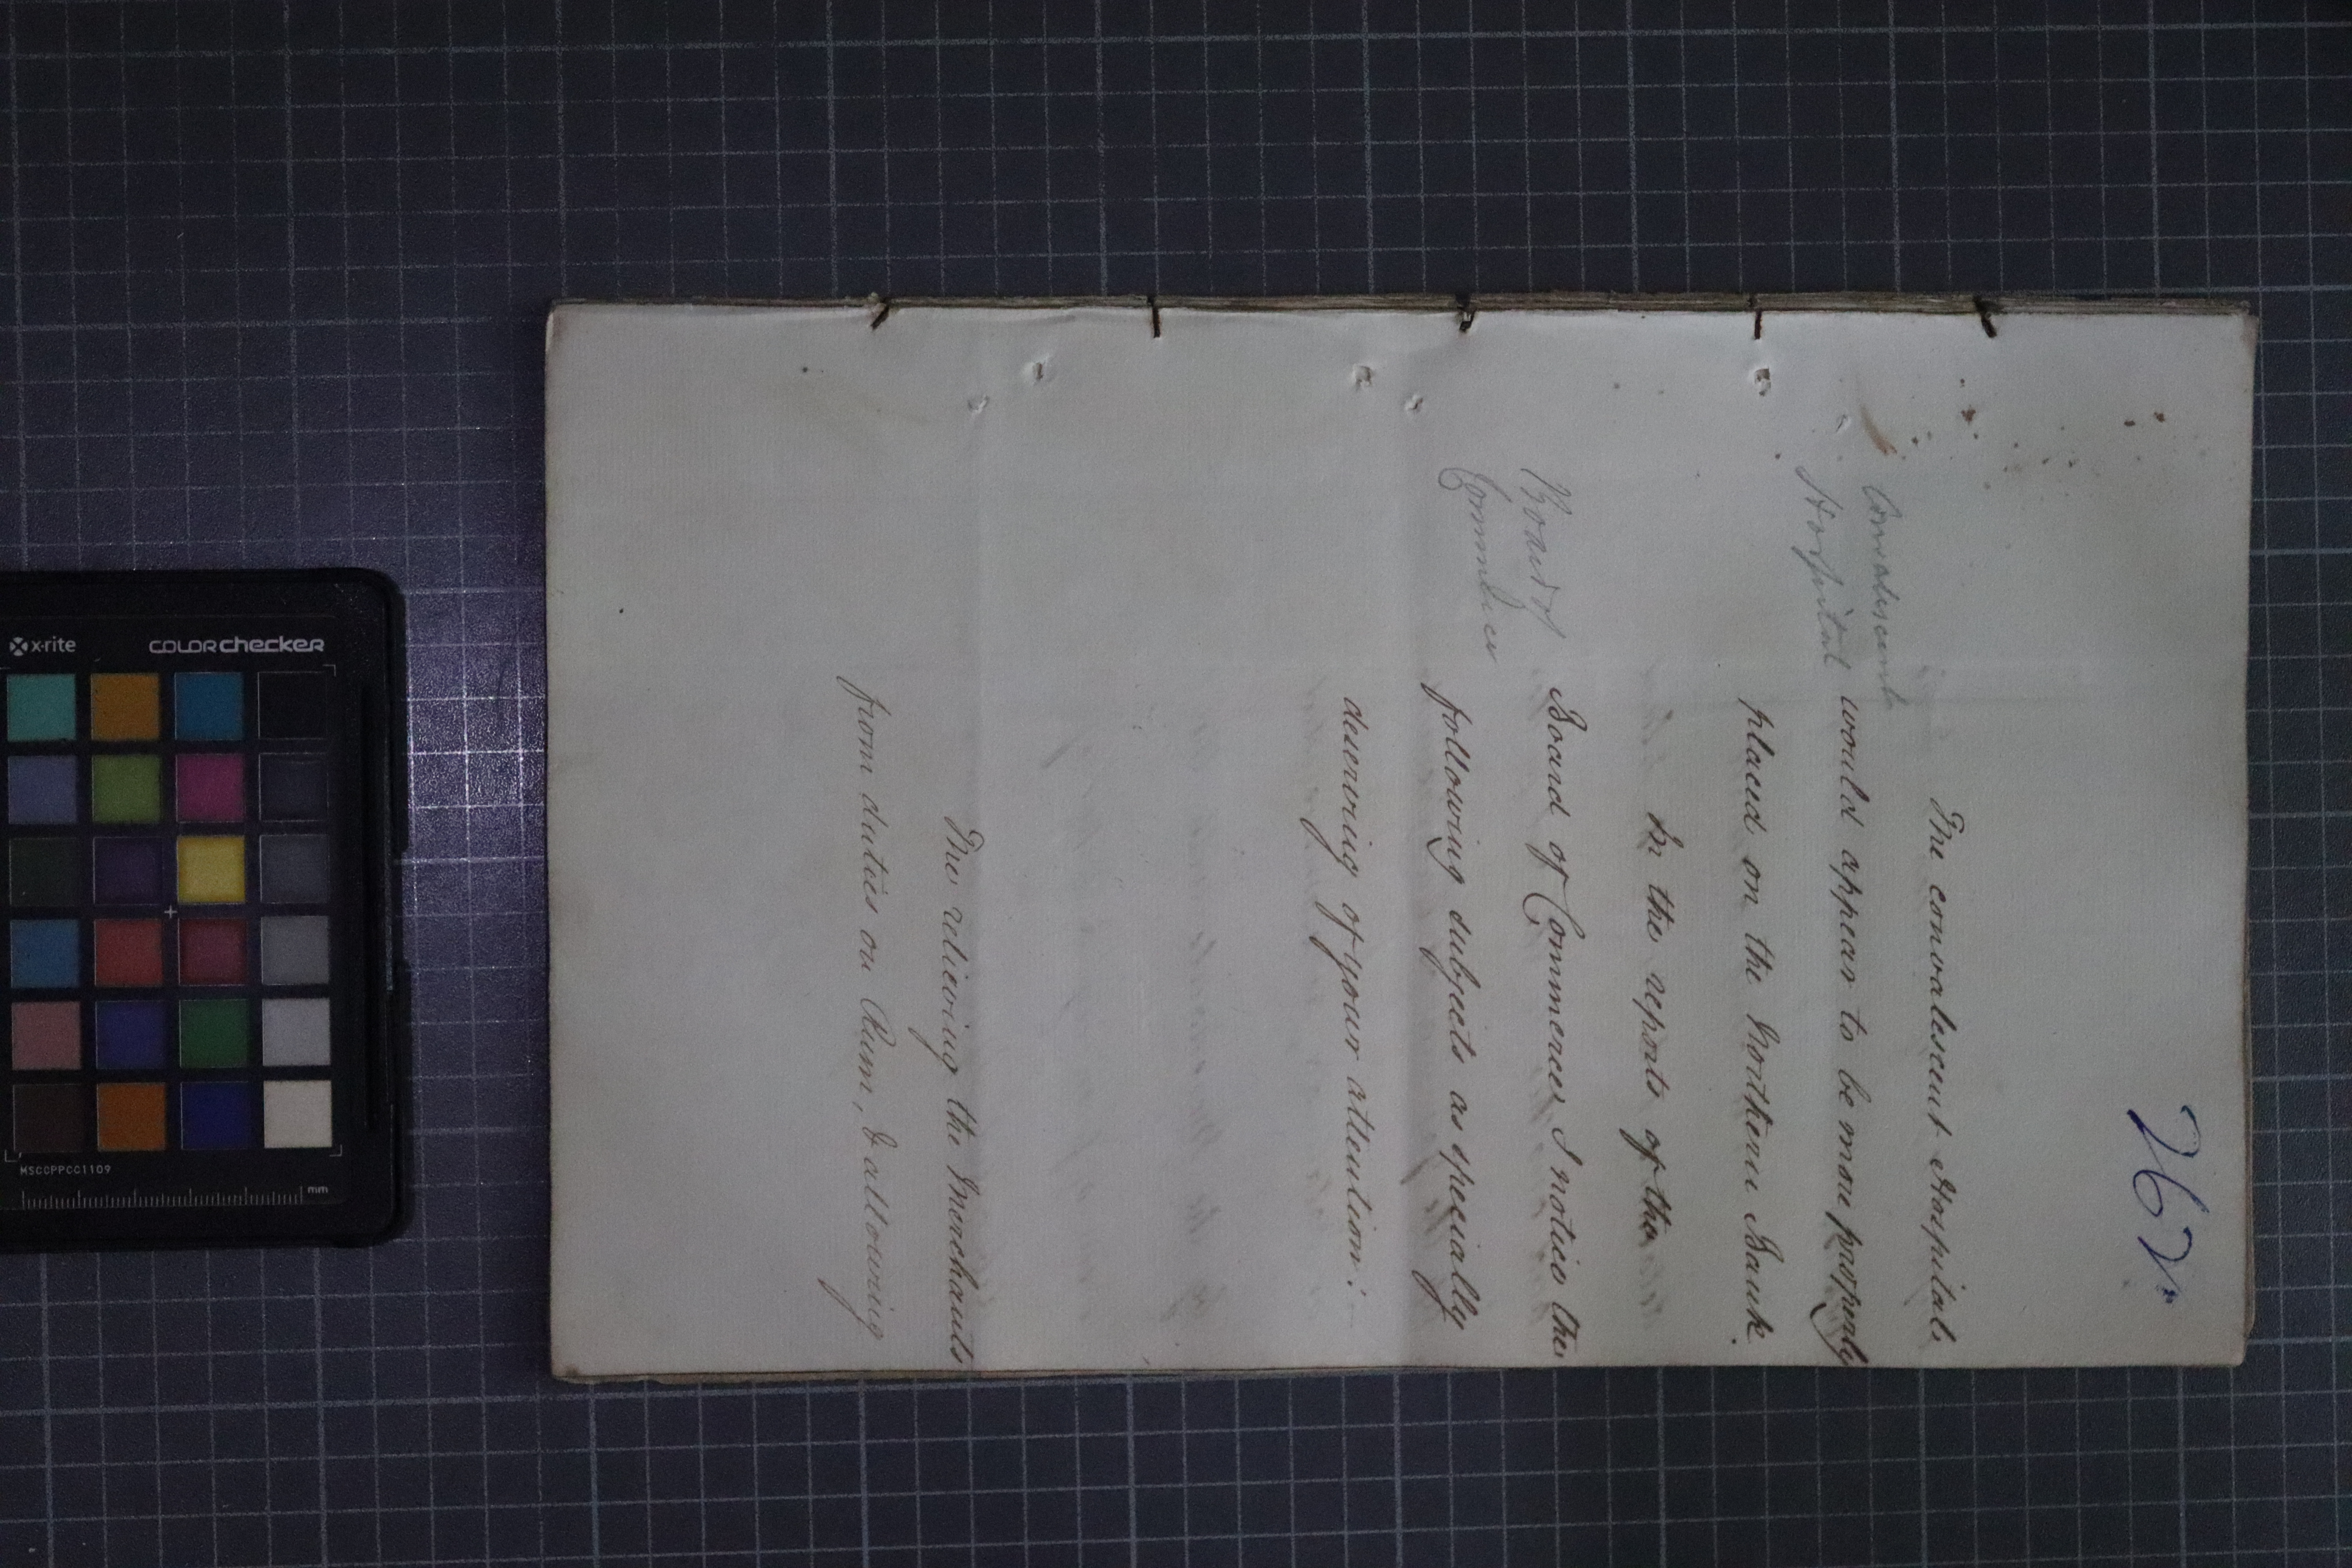 262.
The convalescent Hospitals
would appear to be more properly
placed on the Northern Bank.
In the reports of the
Board of Commerce, I notice the
following subjects as specially
deserving of your attention:
The relieving the Merchants
from duties on Rum, & allowing
Convalescent
Hospital
Board of
Commerce
x-rite
COLORchecker
MSCCPPCC1109
mm